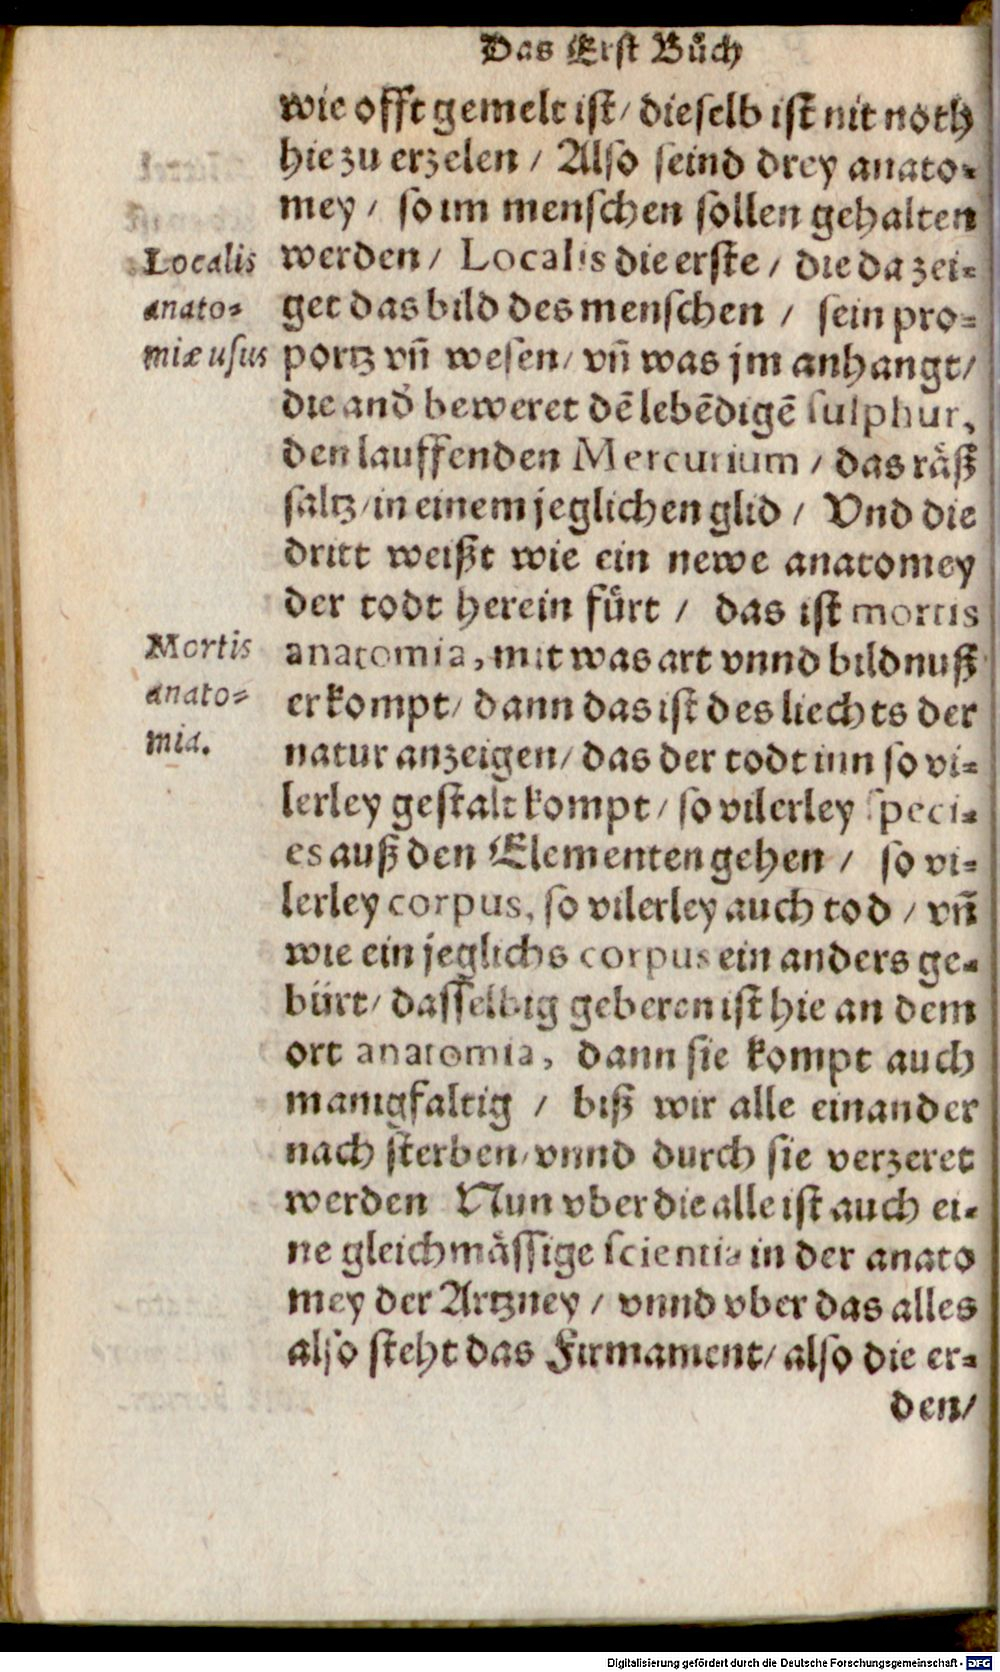 Das Erst Bůch
wie offt gemelt ist / dieselb ist nit noth
hie zu erzelen / Also seind drey anato-
mey / so im menschen sollen gehalten
werden / Localis die erste / die da zei-
get das bild des menschen / sein pro-
portz vñ wesen / vñ was jm anhangt /
die and̃ beweret dẽ lebẽdigẽ sulphur,
den lauffenden Mercurium / das räß
saltz / in einem jeglichen glid / Vnd die
dritt weißt wie ein newe anatomey
der todt herein fürt / das ist mortis
anatomia, mit was art vnnd bildnuß
er kompt / dann das ist des liechts der
natur anzeigen / das der todt inn so vi-
lerley gestalt kompt / so vilerley speci-
es auß den Elementen gehen / so vi-
lerley corpus, so vilerley auch tod / vñ
wie ein jeglichs corpus ein anders ge-
bürt / dasselbig geberen ist hie an dem
ort anatomia, dann sie kompt auch
manigfaltig / biß wir alle einander
nach sterben / vnnd durch sie verzeret
werden Nun vber die alle ist auch ei-
ne gleichmässige scientia in der anato
mey der Artzney / vnnd vber das alles
also steht das Firmament / also die er-
den /
Localis
anato-
miæ usus
Mortis
anato-
mia.
Digitalisierung gefördert durch die Deutsche Forschungsgemeinschaft - DFG